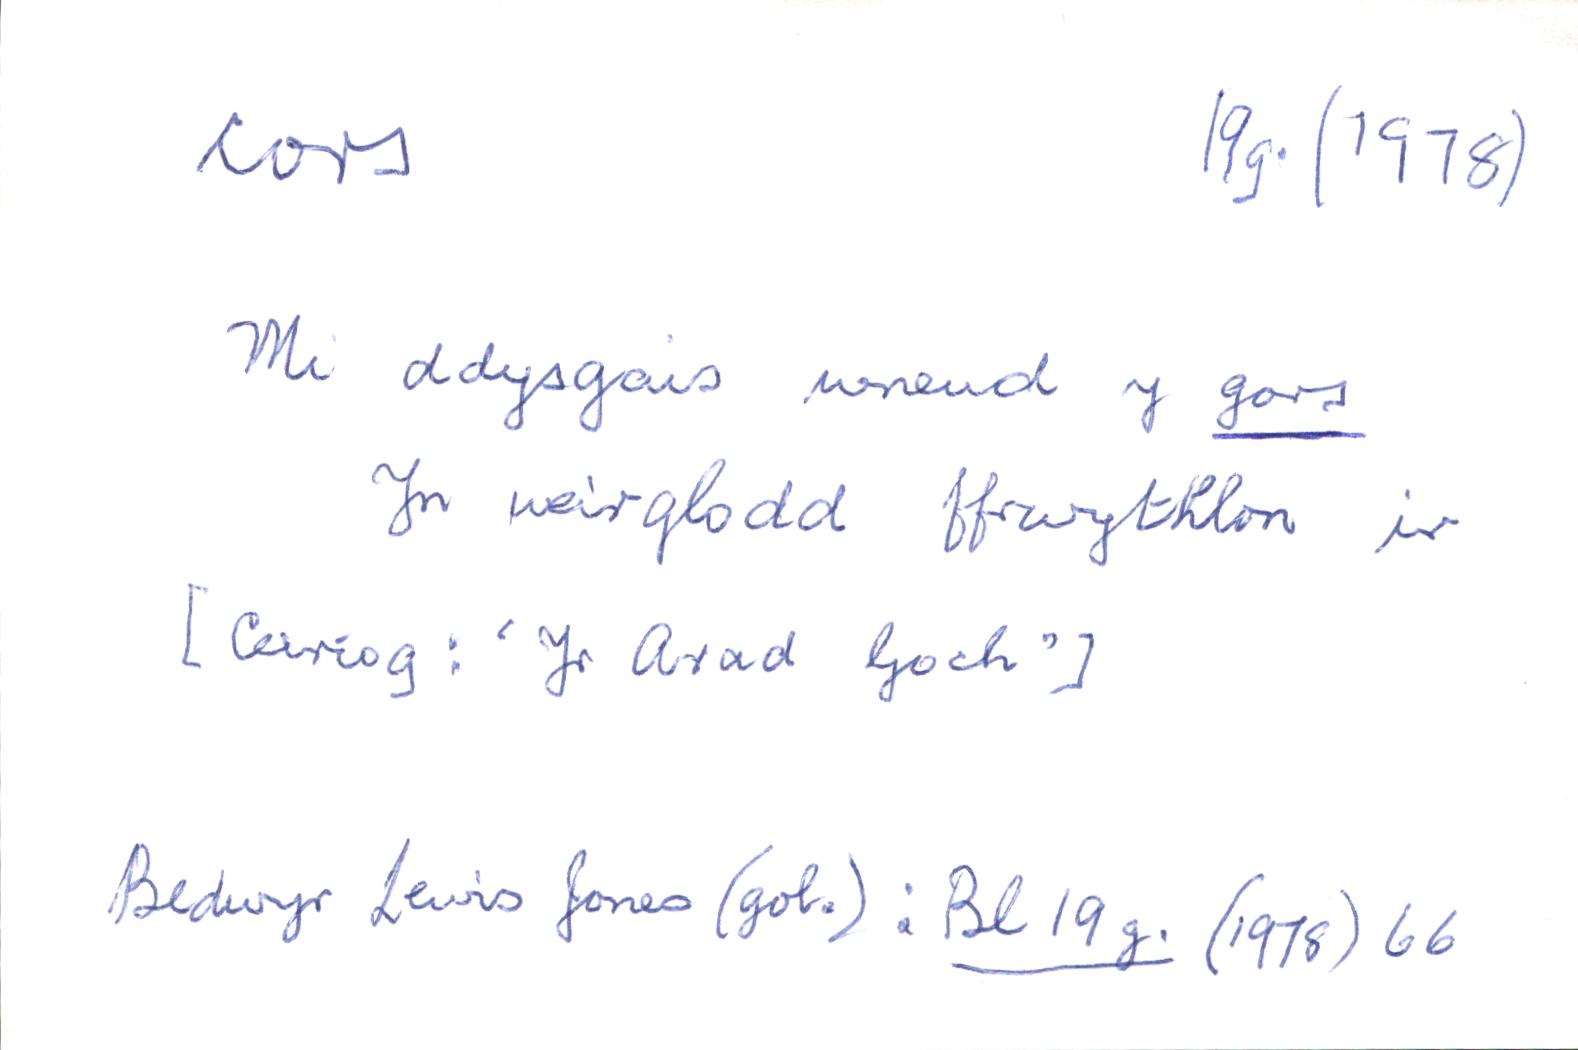 cors 19g. (1978)
Mi ddysgais wneud y gors
Yn weirglodd ffrwythlon ir
[Ceiriog: 'Yr Arad Goch']
Bedwyr Lewis Jones (gol.): Bl 19g. (1978) 66